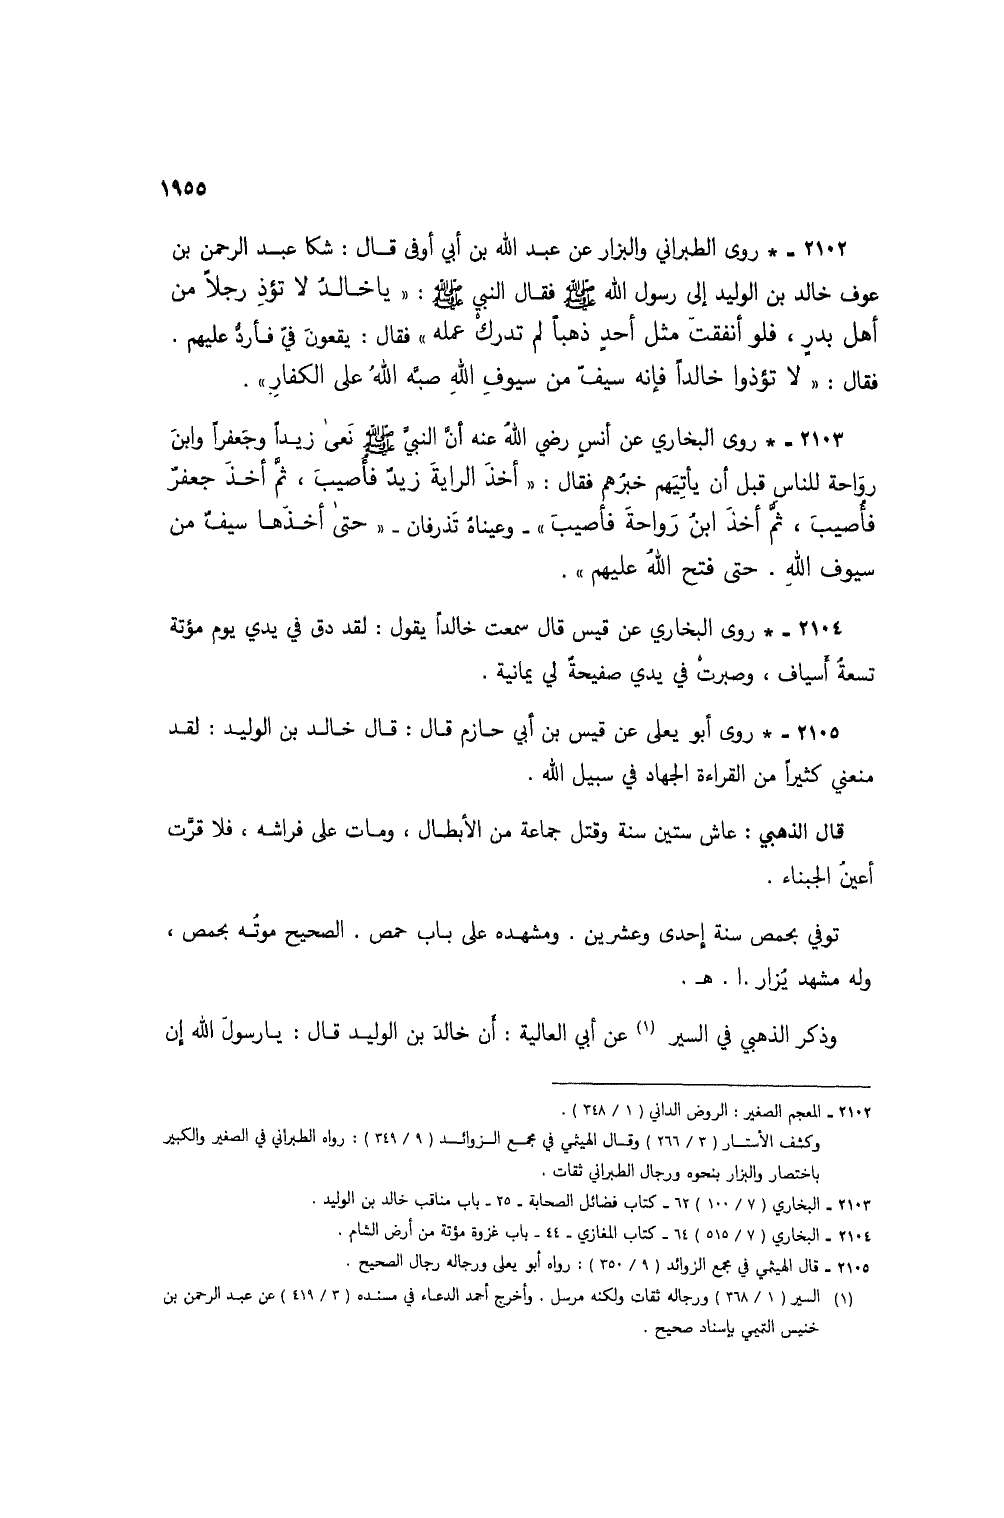 ١٩٥٥
٢١٠٢ ـ * روى الطبراني والبزار عن عبد الله بن أبي أوفى قال : شكا عبد الرحمن بن
عوف خالد بن الوليد إلى رسول الله ﷺ فقال النبي ﷺ : « ياخالدُ لا تؤذِ رجلاً من
أهل بدرٍ ، فلو أنفقتَ مثل أحدٍ ذهباً لم تدركْ عمله » فقال : يقعونَ فيّ فأردُّ عليهم .
فقال : « لا تؤذوا خالداً فإنه سيفٌ من سيوفِ اللهِ صبَّه اللهُ على الكفارِ» .
٢١٠٣ ـ * روى البخاري عن أنسٍ رضي اللهُ عنه أنَّ النبيَّ ﷺ نَعىٰ زيداً وجَعفراً وابنَ
روَاحة للناسِ قبل أن يأتِيَهم خبرُهم فقال : « أخذَ الرايةَ زيدٌ فأُصيبَ ، ثمَّ أخذَ جعفرٌ
فأُصيبَ ، ثمَّ أخذَ ابنُ رَواحةَ فأصيبَ » ـ وعيناهُ تَذرفان ـ « حتىٰ أخذَها سيفٌ من
سيوف اللهِ . حتى فتح اللهُ عليهم » .
٢١٠٤ ـ * روى البخاري عن قيس قال سمعت خالداً يقول : لقد دق في يدي يوم مؤتة
تسعةُ أَسياف ، وصبرتْ في يدي صفيحةٌ لي يمانية .
٢١٠٥ ـ * روى أبو يعلى عن قيس بن أبي حازم قال : قال خالد بن الوليد : لقد
منعني كثيراً من القراءة الجهاد في سبيل الله .
قال الذهبي : عاش ستين سنة وقتل جماعة من الأبطال ، ومات على فراشه ، فلا قرَّت
أعينُ الجبناء .
توفي بحمص سنة إحدى وعشرين . ومشهده على باب حمص . الصحيح موتُه بحمص ،
وله مشهد يُزار .ا . هـ .
وذكر الذهبي في السير (١) عن أبي العالية : أَن خالدَ بن الوليد قال : يارسولَ الله إن
٢١٠٢ ـ المعجم الصغير : الروض الداني ( ١ / ٣٤٨ ) .
وكشف الأستار ( ٣ / ٢٦٦ ) وقال الهيثمي في مجمع الزوائد ( ٩ / ٣٤٩ ) : رواه الطبراني في الصغير والكبير
باختصار والبزار بنحوه ورجال الطبراني ثقات .
٢١٠٣ ـ البخاري ( ٧ / ١٠٠ ) ٦٢ ـ كتاب فضائل الصحابة ـ ٢٥ ـ باب مناقب خالد بن الوليد .
٢١٠٤ ـ البخاري ( ٧ / ٥١٥ ) ٦٤ ـ كتاب المغازي ـ ٤٤ ـ باب غزوة مؤتة من أرض الشام .
٢١٠٥ ـ قال الهيثمي في مجمع الزوائد ( ٩ / ٣٥٠ ) : رواه أبو يعلى ورجاله رجال الصحيح .
(١) السير ( ١ / ٣٦٨ ) ورجاله ثقات ولكنه مرسل . وأخرج أحمد الدعاء في مسنده ( ٣ / ٤١٩ ) عن عبد الرحمن بن
خنيس التميمي بإسناد صحيح .